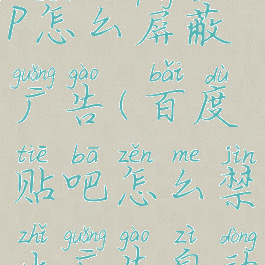 P怎么屏蔽
guǎng gào bǎi dù
广告(百度
tiē bā zěn me jìn
贴吧怎么禁
zhǐ guǎng gào zì dòng
止广告自动